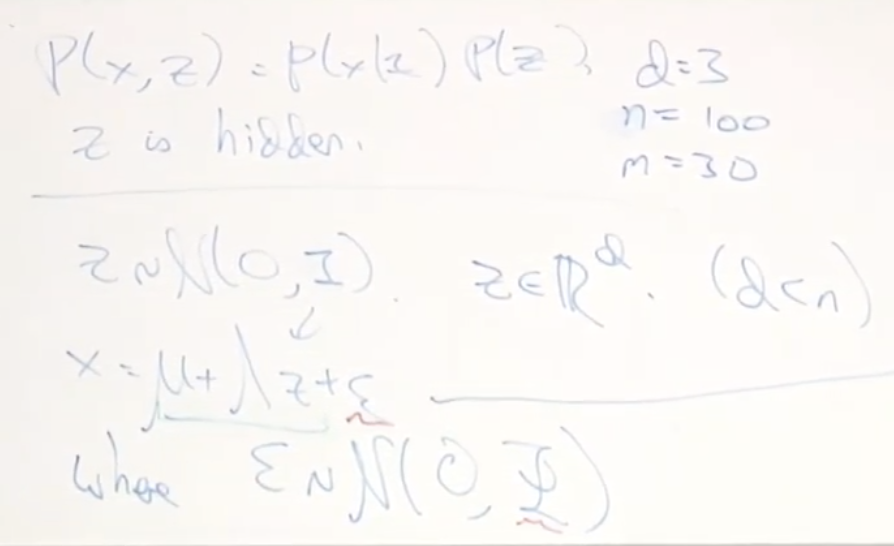 P(x,z) = p(x|z) P(z) d=3
z is hidden. n = 100
m = 30
z ~ N(0,I). z ∈ ℝᵈ. (d<n)
x = μ + Λz + ε
where ε ~ N(0,Ψ)